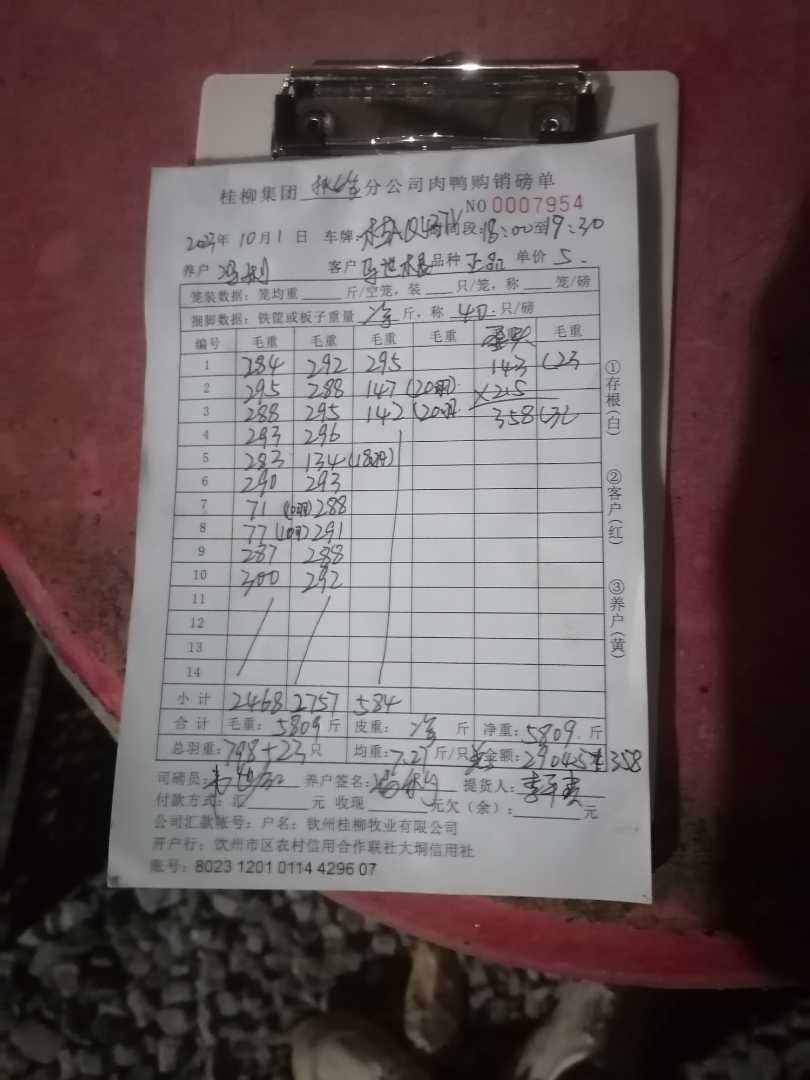 桂柳集团 分公司肉鸭购销磅单
NO 0007954
2023年 10月 1 日 车牌: 时间段: 18:00到19:30
养户 客户 品种 正品 单价 5.
笼装数据: 笼均重 斤/空笼, 装 只/笼, 称 笼/磅
捆脚数据: 铁筐或板子重量 斤, 称 40. 只/磅
编号 毛重 毛重 毛重 毛重 毛重
1 284 292 295 143 (23
2 295 288 147 (20羽) ×2.5
3 288 295 142 (20羽 358
4 293 296
5 283 134 (18羽)
6 290 293
7 71 (10羽) 288
8 77 (10羽) 291
9 287 288
10 300 292
11
12
13
14
小计 2468 2757 584
合计 毛重: 5809 斤 皮重: 斤 净重: 5809. 斤
总羽重: 798+23 只 均重: 7.27 斤/只 金额: 29045+358
司磅员: 养户签名: 提货人:
付款方式: 汇 元 收现 元欠(余): 元
公司汇款帐号: 户名: 钦州桂柳牧业有限公司
开户行: 钦州市区农村信用合作联社大垌信用社
账号: 8023 1201 0114 4296 07
①存根(白)
②客户(红)
③养户(黄)